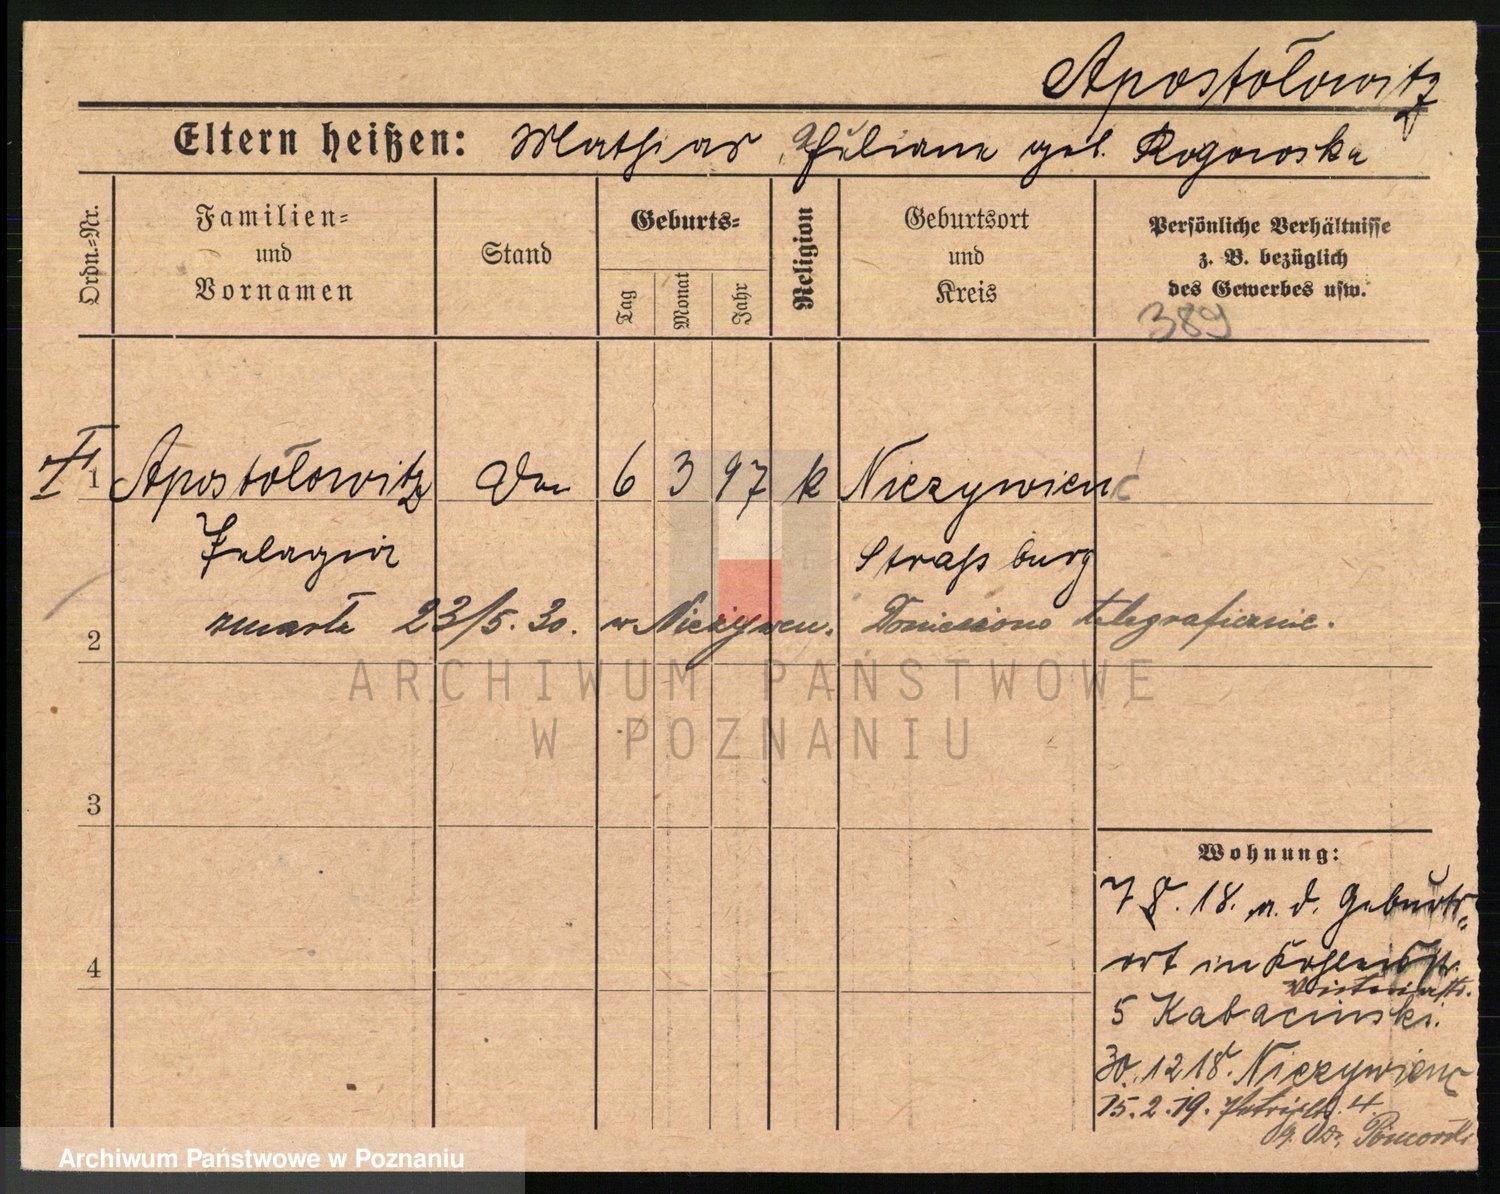 Apostołowitz
Eltern heißen: Mathias, Juliane geb. Rogowska
Ordn.-Nr.
Familien- und Vornamen
Stand
Geburts-
Tag
Monat
Jahr
Religion
Geburtsort und Kreis
Persönliche Verhältnisse
z. B. bezüglich
des Gewerbes usw.
389
1 Apostołowitz 6 3 97 k Niezywienć
Pelagia Straßburg
2 zmarła 23/5. 30. w Nieżywien. Doniesiono telegraficznie.
3
4
Wohnung:
7 8. 18. a. d. Geburts-
ort im
5 Kabacinski.
30. 12 18. Niezywienc
15. 2. 19. 4.
ARCHIWUM PAŃSTWOWE
W POZNANIU
Archiwum Państwowe w Poznaniu